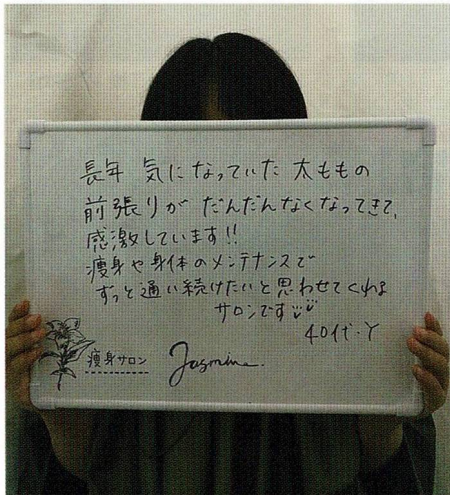 長年 気になっていた 太ももの
前張りが だんだんなくなってきて、
感激しています!!
痩身や身体のメンテナンスで
ずっと通い続けたいと思わせてくれる
サロンです
40代・Y
痩身サロン Jasmine.